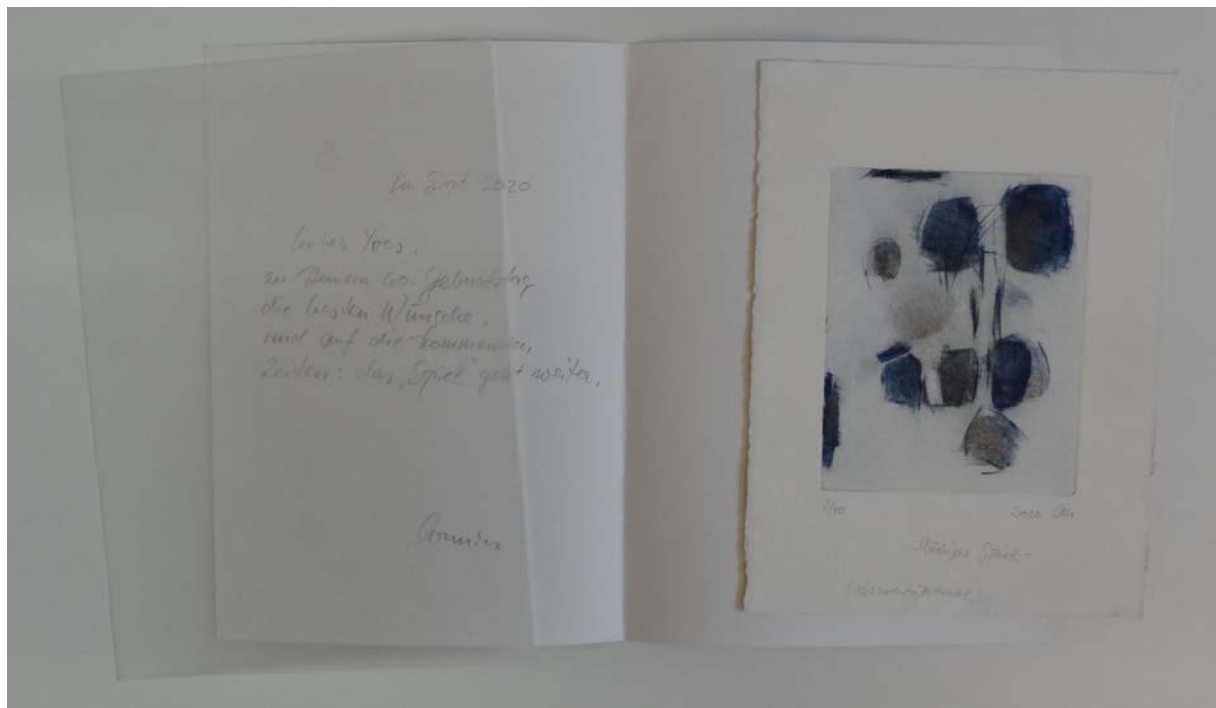 Im Sept 2020
Lieber Yves,
zu Deinem 60. Geburtstag
die besten Wünsche,
und auf die kommenden
Zeiten: das „Spiel“ geht weiter.
Armin
/10
2020
Spiel-